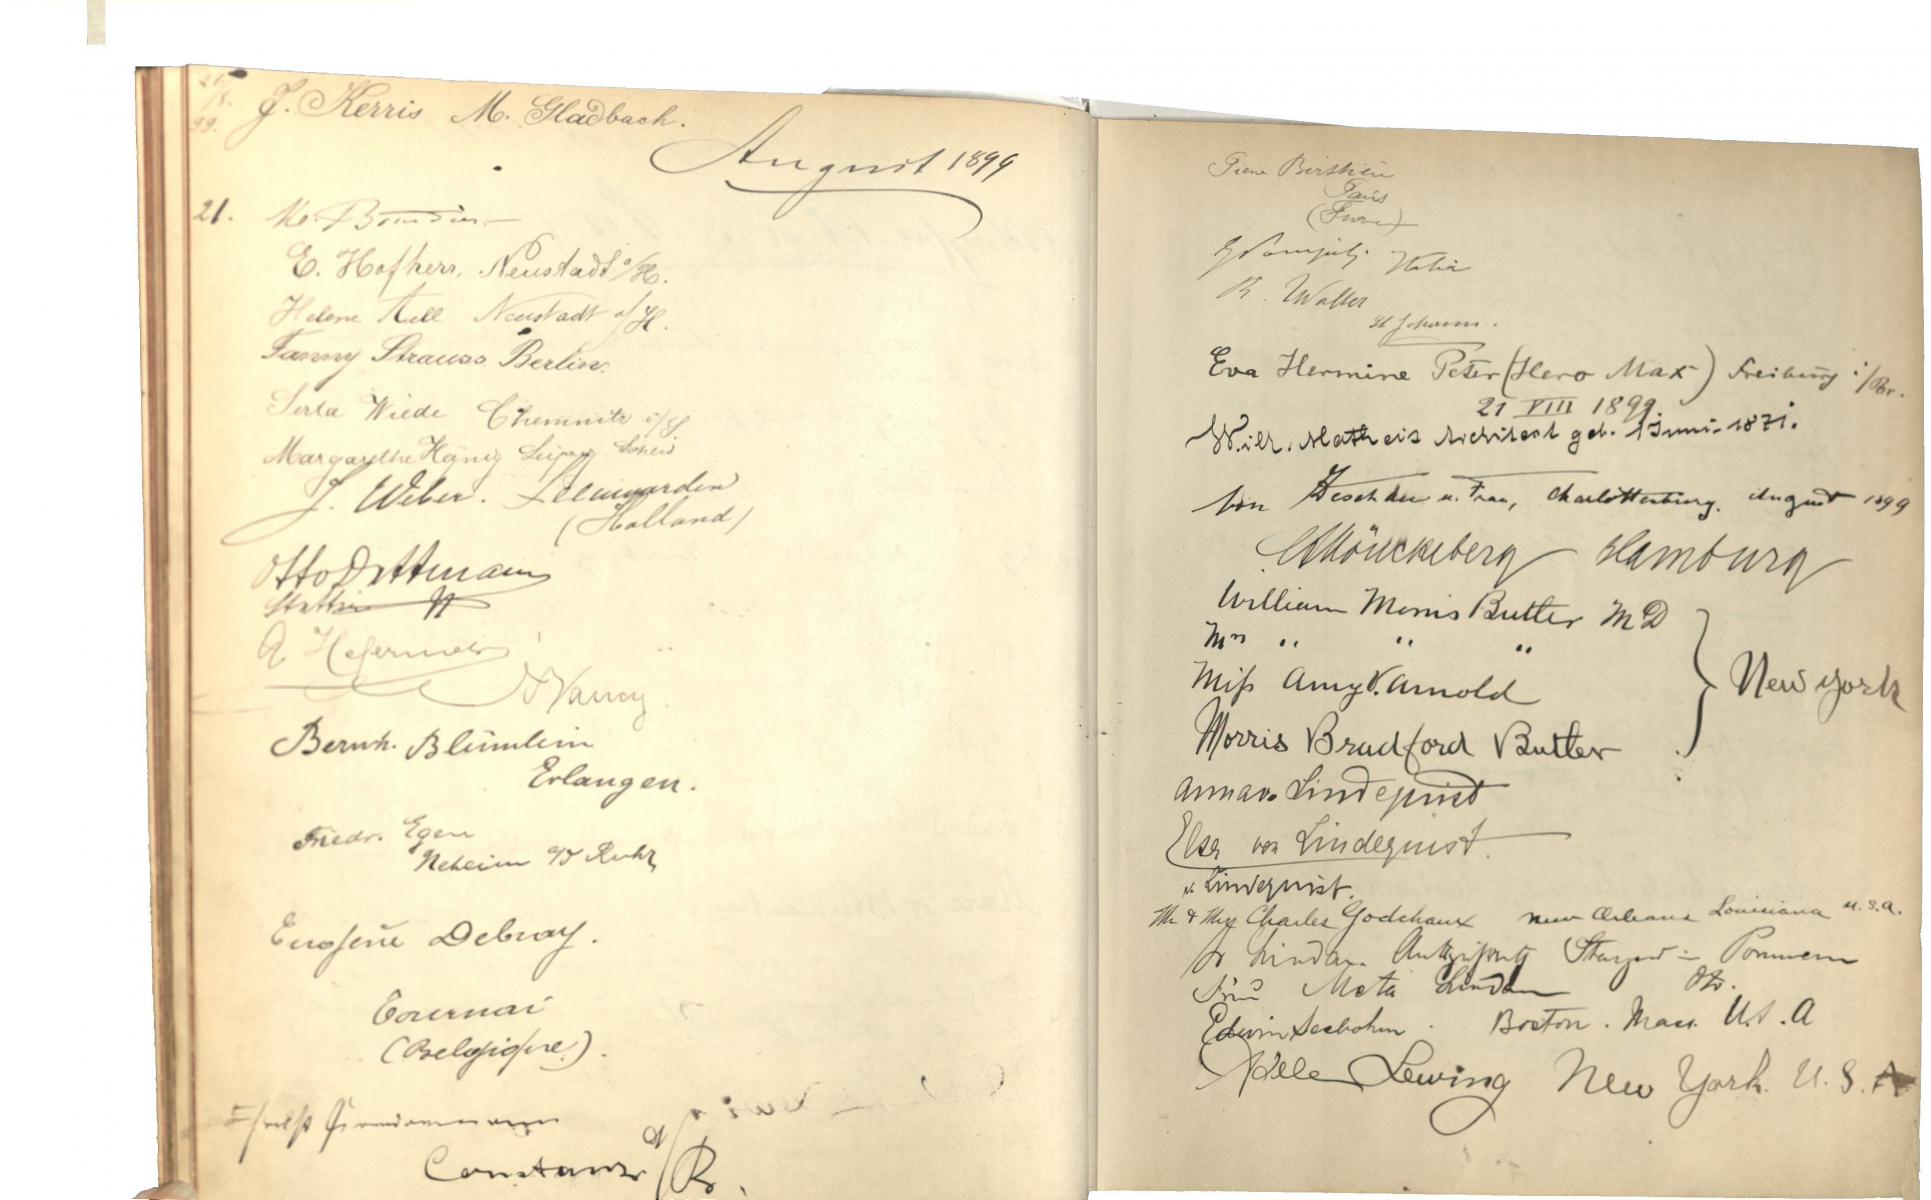 21/8. 99.
J. Kerris M. Gladbach.
August 1899
21.
E. Hofherr, Neustadt a/H.
Helene Aull Neustadt a/H.
Fanny Strauss Berlin.
Wiede Chemnitz i/S
Margarethe König Leipzig
J. Weber. Leeuwarden
(Holland)
Otto Dettmann
Stettin
Nancy
Bernh. Blümlein
Erlangen.
Friedr. Egen
Neheim a/d Ruhr
Eugène Debray.
Tournai
(Belgique).
Constanz a/B.
Paris
R. Walter
St Johann.
Eva Hermine Peter (Hero Max) Freiburg i/Br.
21 VIII 1899.
Wilh. Matheis Architect geb. 1 Juni 1871.
von u. Frau, Charlottenburg. August 1899
Mönckeberg Hamburg
William Morris Butler MD
Mrs " " "
Miss Amy V. Arnold
New York
Morris Bradford Butler
Anna v. Lindequist
Elsa von Lindequist.
v. Lindequist.
Mr & Mrs Charles Godchaux New Orleans Louisiana U.S.A.
Pommern
Frau Meta Lindau
Edwin Seebohm. Boston. Mass. U.S.A
Adele Lewing New York. U.S.A